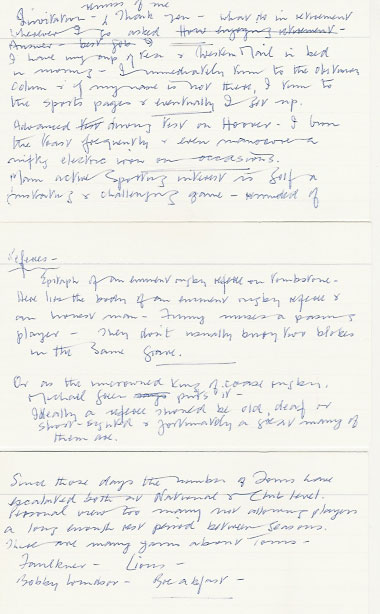 Invitation - & Thank you - what do in retirement
wherever I go asked How enjoying retirement -
Answer - best job I
I have my cup of tea & Western Mail in bed
in morning - I immediately turn to the obituary
column & if my name is not there, I turn to
the sports pages & eventually I get up.
Advanced driving test on Hoover - I burn
the toast frequently & even manoeuvre a
nifty electric iron on occasions.
Main active Sporting interest is Golf a
frustrating & challenging game - reminded of
Referees -
Epitaph of an eminent rugby referee on tombstone -
Here lies the body of an eminent rugby referee &
an honest man - Funny muses a passing
player - They don't usually bury two blokes
in the Same Grave.
Or as the uncrowned King of coarse rugby.
Michael Green says puts it -
Ideally a referee should be old, deaf or
short-sighted & fortunately a great many of
them are.
Since those days the number of Tours have
escalated both at National & Club level.
Personal view too many not allowing players
a long enough rest period between seasons.
There are many yarns about Tours -
Faulkner - Lions -
Bobby Windsor - Breakfast -